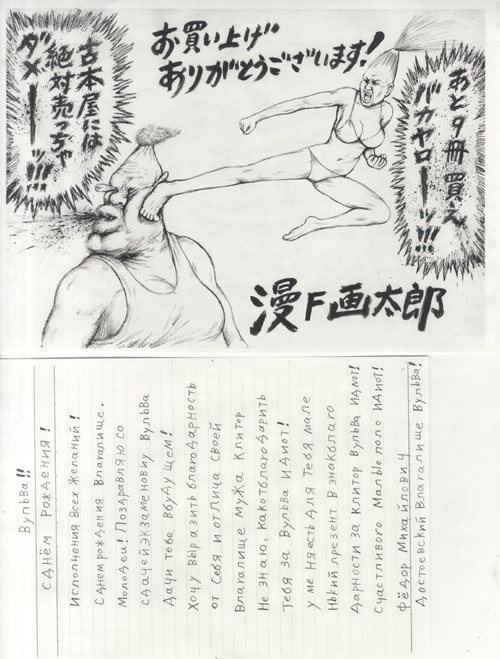 お買い上げ
ありがとうございます!
あと9冊買え
バカヤローッ!!!
古本屋には
絶対売っちゃ
ダメーーッ!!!!
漫F画太郎
Вульва!!
с Днём Рождения!
Исполнения всех желаний!
С днем рождения Влагалище.
Молодец! Поздравляю со
сдачей экзаменовиу Вульва
Дачи тебе вбудущем!
Хочу выразить благодарность
от себя и отлица своей
Влагалище мужа клитор
Не знаю, какотблагодарить
тебя за Вульва идиот!
у ме няесть для тебя мале
нький презент в знакблаго
дарности за клитор Вульва идиот!
Счастливого Малые попо идиот!
Фёдор Михайлович
Достоевский Влагалище Вульва!